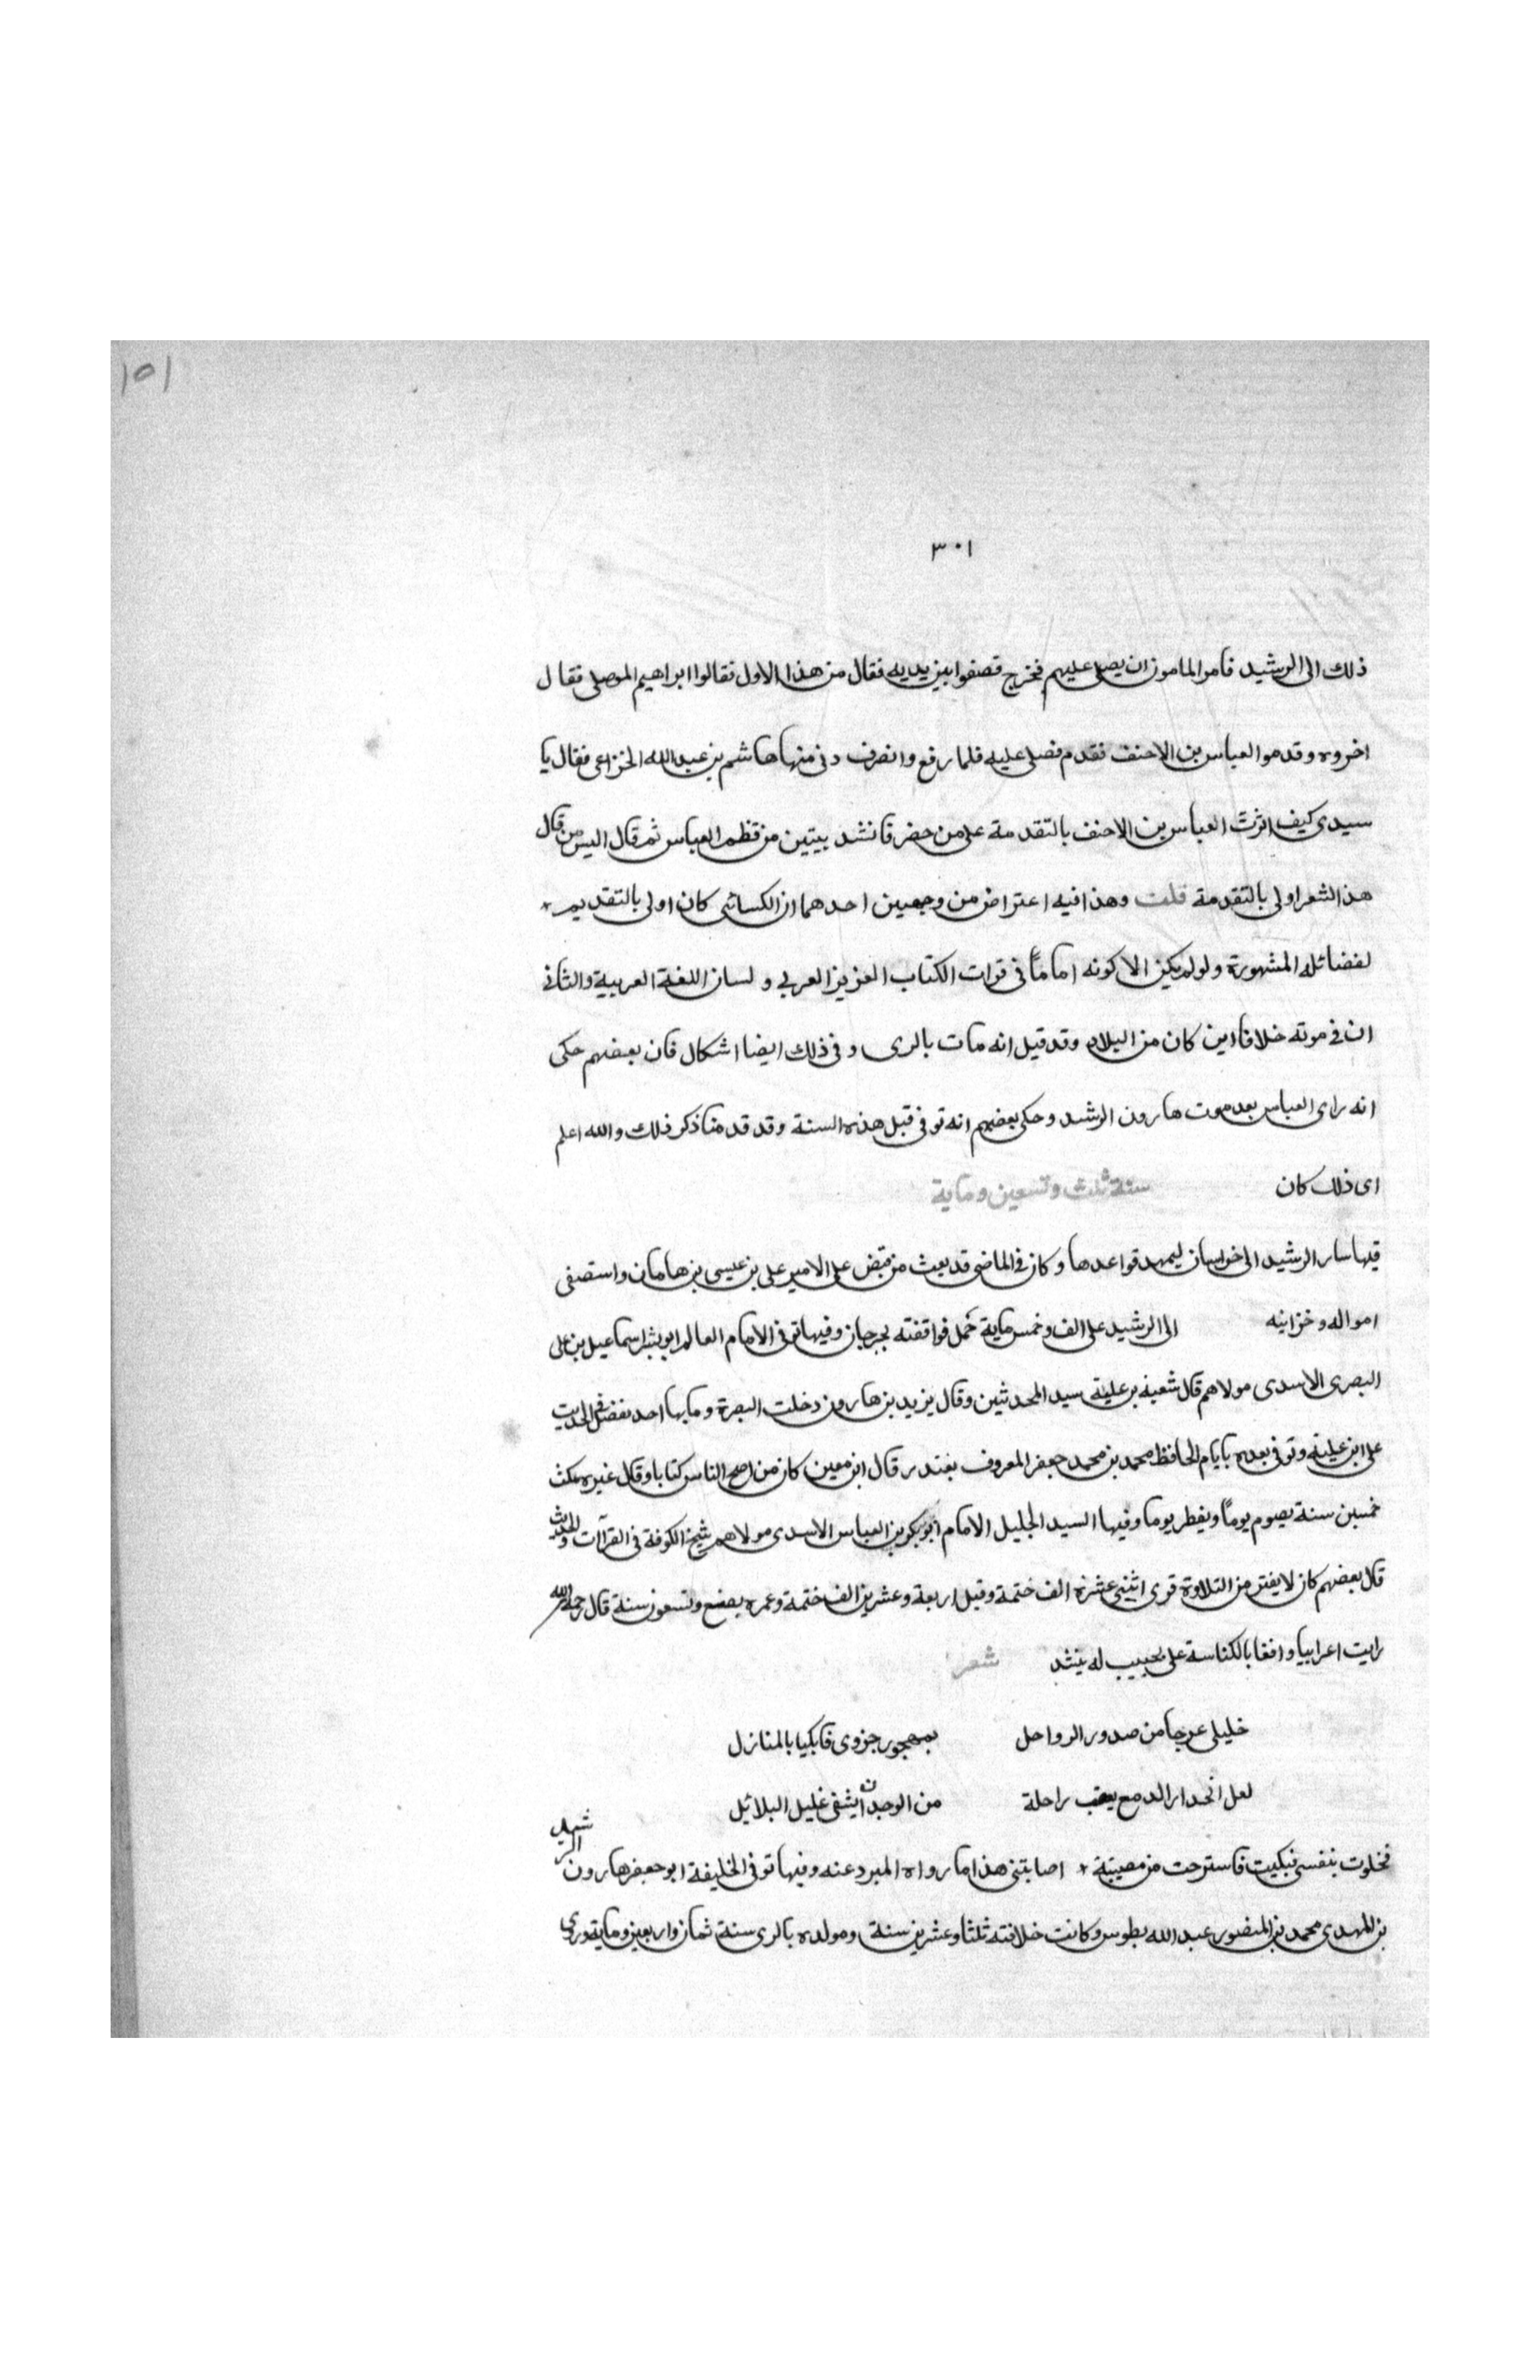 ١٥١
٣٠١
ذلك الى الرشيد فامر المامون ان يصلى عليهم فخرج فصفوا بين يديه فقال من هذا الاول فقالوا ابراهيم الموصلى فقال
اخروه وقدموا العباس بن الاحنف فقدم فصلى عليه فلما رفع وانصرف دنى منها هاشم بن عبد الله الخزاعى فقال يا
سيدى كيف اثرت العباس بن الاحنف بالتقدمة على من حضر فانشد ببيتين من نظم العباس ثم قال اليس من قال
هذ الشعر اولى بالتقدمة قلت وهذا فيه اعتراض من وجهين احدهما ان الكسائى كان اولى بالتقديم
لفضائله المشهورة ولو لم يكن الا كونه اماماً فى قرات الكتاب العزيز العربى ولسان اللغة العربية والثانى
ان فى موته خلافا اين كان من البلاد وقد قيل انه مات بالرى وفى ذلك ايضا اشكال فان بعضهم حكى
انه راى العباس بعد موت هارون الرشد وحكى بعضهم انه توفى قبل هذه السنة وقد قدمنا ذكر ذلك والله اعلم
اى ذلك كان سنة ثلث وتسعين وماية
فيها سار الرشيد الى خراسان ليمهد قواعدها وكان فى الماضى قد بعث من قبض على الامير على بن عيسى بن هامان واستصفى
امواله وخزاينه الى الرشيد على الف وخمس ماية حمل فوافقته بجرجان وفيها توفى الامام العالم ابو بشر اسماعيل بن على
البصرى الاسدى مولاهم قال شعبة بن علية سيد المحدثين وقال يزيد بن هارون دخلت البصرة وما بها احد يفضل فى الحديث
على ابن علية وتوفى بعده بايام الحافظ محمد بن محمد جعفر المعروف بغندر قال ابن معين كان من اصح الناس كتابا وقال غيره مكث
خمسين سنة يصوم يوماً ويفطر يوما وفيها السيد الجليل الامام ابو بكر بن العباس الاسدى مولاهم شيخ الكوفة فى القرآات والحديث
قال بعضهم كان لا يفتر من التلاوة قرى اثنى عشرة الف ختمة وقيل اربعة وعشرين الف ختمة وعمره بضع وتسعون سنة قال رحمه الله
رايت اعرابيا واقفا بالكناسة على نجيب له ينشد شعر
خليلى عرجا من صدور الرواحل بمهجور جزوى فابكيا بالمنازل
لعل انحدار الدمع يعقب راحلة من الوجد ان يشفى غليل البلائل
فخلوت بنفسى فبكيت فاسترحت من مصيبة اصابتنى هذا ما رواه المبرد عنه وفيها توفى الخليفة ابو جعفر هارون الرشيد
بن المهدى محمد بن المنصور عبد الله بطوس وكانت خلافته ثلثا وعشرين سنة ومولده بالرى سنة ثمان واربعين وماية وروى